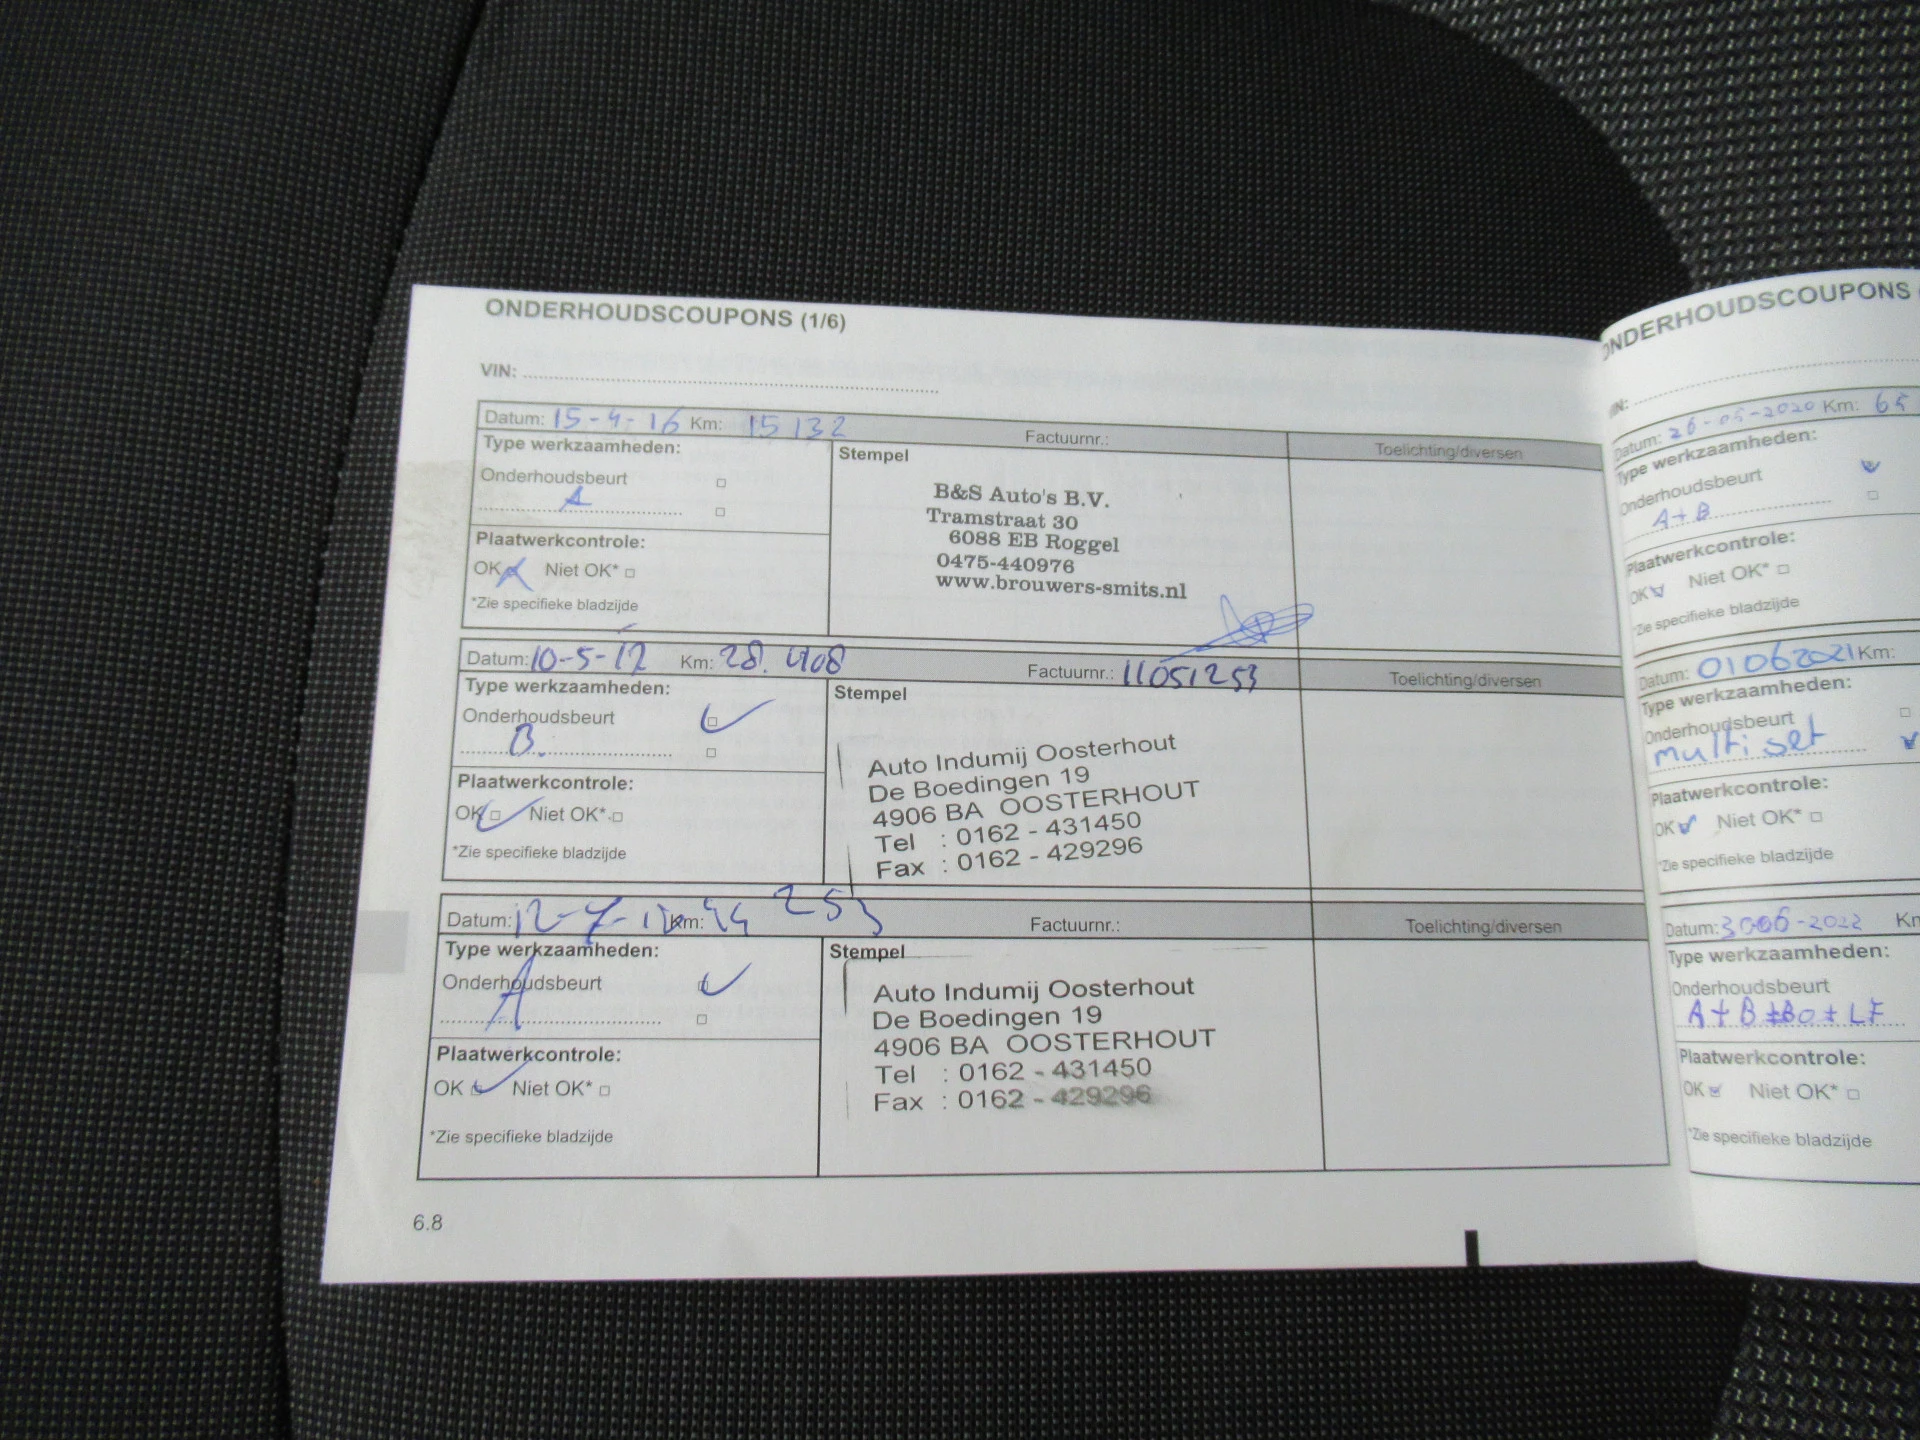 ONDERHOUDSCOUPONS (1/6)
VIN:
Datum: 15-4-16 Km: 15 132 Factuurnr.: Toelichting/diversen
Type werkzaamheden:
Stempel
Onderhoudsbeurt
A
Plaatwerkcontrole:
OK Niet OK*
*Zie specifieke bladzijde
B&S Auto's B.V.
Tramstraat 30
6088 EB Roggel
0475-440976
www.brouwers-smits.nl
Datum: 10-5-17 Km: 28.408 Factuurnr.: 11051253 Toelichting/diversen
Type werkzaamheden:
Stempel
Onderhoudsbeurt
B.
Plaatwerkcontrole:
OK Niet OK*
*Zie specifieke bladzijde
Auto Indumij Oosterhout
De Boedingen 19
4906 BA OOSTERHOUT
Tel : 0162 - 431450
Fax : 0162 - 429296
Datum: Km: 44 253 Factuurnr.: Toelichting/diversen
Type werkzaamheden:
Stempel
Onderhoudsbeurt
A
Plaatwerkcontrole:
OK Niet OK*
*Zie specifieke bladzijde
Auto Indumij Oosterhout
De Boedingen 19
4906 BA OOSTERHOUT
Tel : 0162 - 431450
Fax : 0162 - 429296
6.8
ONDERHOUDSCOUPONS (
VIN:
Datum: 26-05-2020 Km: 65
Type werkzaamheden:
Onderhoudsbeurt
A+B
Plaatwerkcontrole:
OK Niet OK*
*Zie specifieke bladzijde
Datum: 01062021 Km:
Type werkzaamheden:
Onderhoudsbeurt
multi set
Plaatwerkcontrole:
OK Niet OK*
*Zie specifieke bladzijde
Datum: 3006-2022 Km
Type werkzaamheden:
Onderhoudsbeurt
A+B+BO+LF
Plaatwerkcontrole:
OK Niet OK*
*Zie specifieke bladzijde